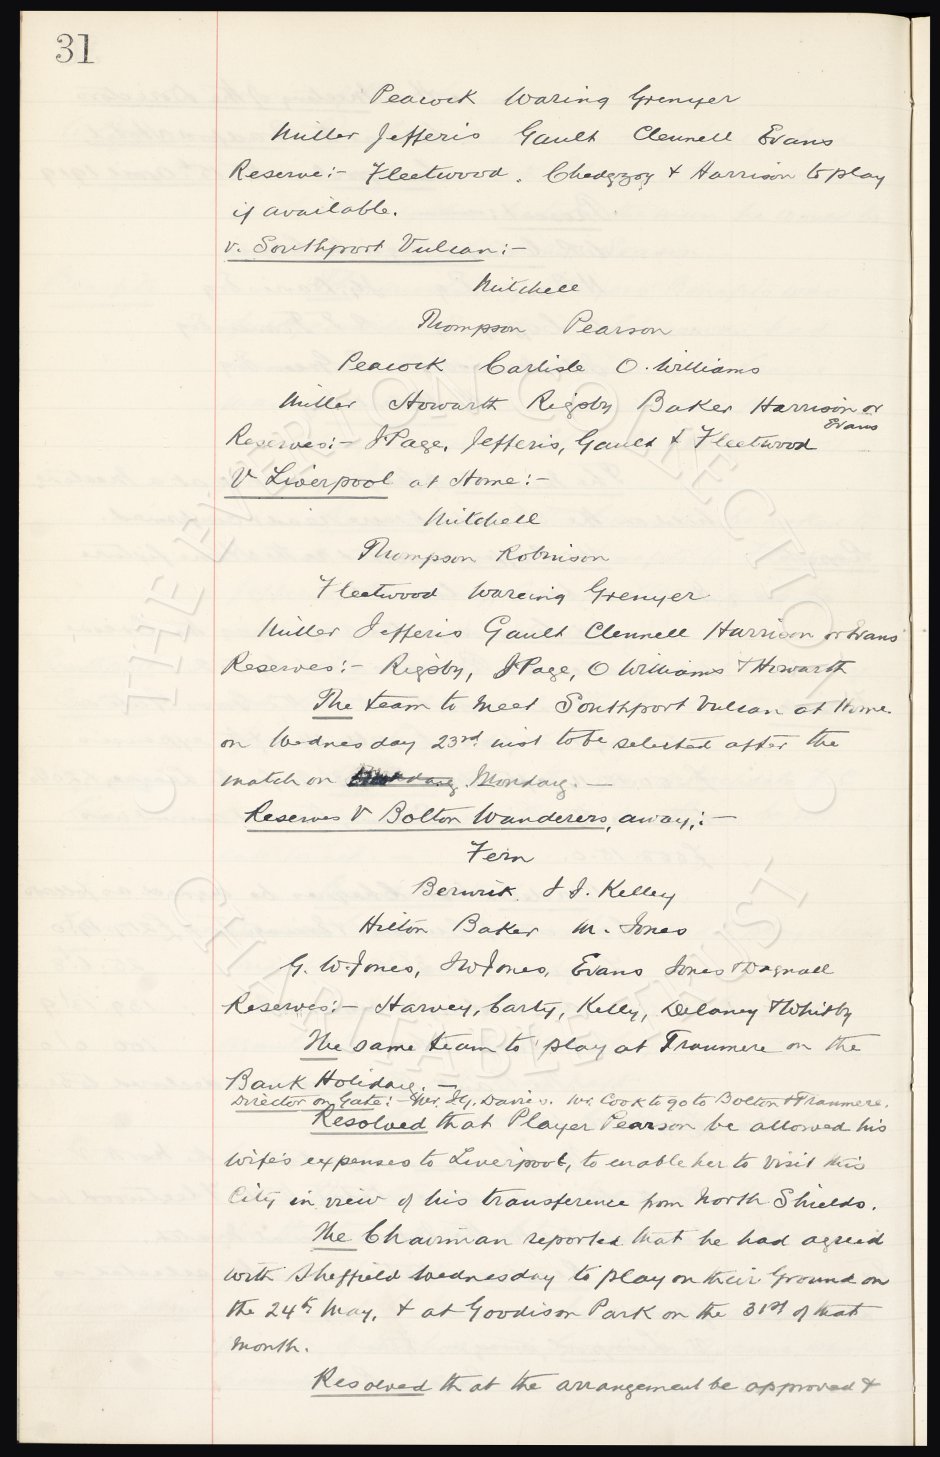 31
Peacock Waring Grenyer
Miller Jefferis Gault Clennell Evans
Reserve:- Fleetwood. Chedgzoy & Harrison to play
if available.
v. Southport Vulcan:-
Mitchell
Thompson Pearson
Peacock Carlisle O. Williams
Miller Howarth Rigsby Baker Harrison or
Evans
Reserves:- J Page, Jefferis, Gault & Fleetwood
V Liverpool at Home:-
Mitchell
Thompson Robinson
Fleetwood Wareing Grenyer
Miller Jefferis Gault Clennell Harrison or Evans
Reserves:- Rigsby, J Page, O Williams & Howarth
The team to meet Southport Vulcan at Home.
on Wednesday 23rd inst to be selected after the
match on Monday. —
Reserves V Bolton Wanderers, away,:-
Fern
Berwick J J. Kelley
Hilton Baker M. Jones
G. W. Jones, J W Jones, Evans Jones & Dagnall
Reserves:- Harvey, Carty, Kelly, Delaney & Whitby
The same team to play at Tranmere on the
Bank Holiday. —
Director on Gate:- Mr. J. G. Davies. Mr. Cook to go to Bolton & Tranmere.
Resolved that Player Pearson be allowed his
wife's expenses to Liverpool, to enable her to visit this
City in view of his transference from North Shields.
The Chairman reported that he had agreed
with Sheffield Wednesday to play on their Ground on
the 24th May, & at Goodison Park on the 31st of that
month.
Resolved that the arrangement be approved &
THE EVERTON COLLECTION
CHARITABLE TRUST